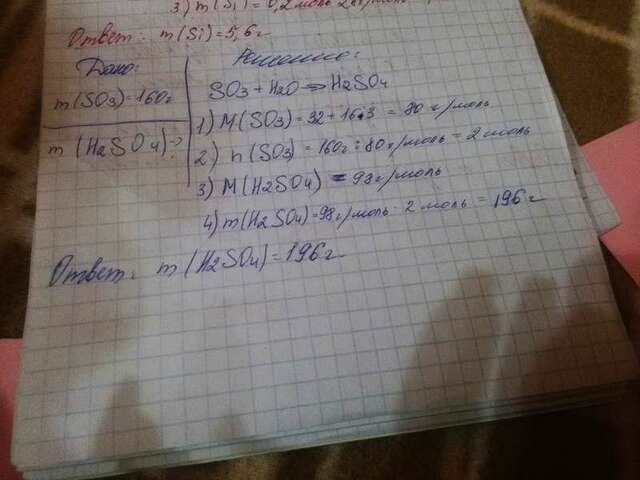 3) m(Si) = 0,2 моль
Ответ: m(Si) = 5,6г
Дано:
m(SO3) = 160г
m(H2SO4) - ?
Решение:
SO3 + H2O → H2SO4
1) M(SO3) = 32 + 16·3 = 80 г/моль
2) n(SO3) = 160г : 80г/моль = 2 моль
3) M(H2SO4) = 98г/моль
4) m(H2SO4) = 98г/моль · 2 моль = 196г
Ответ: m(H2SO4) = 196г